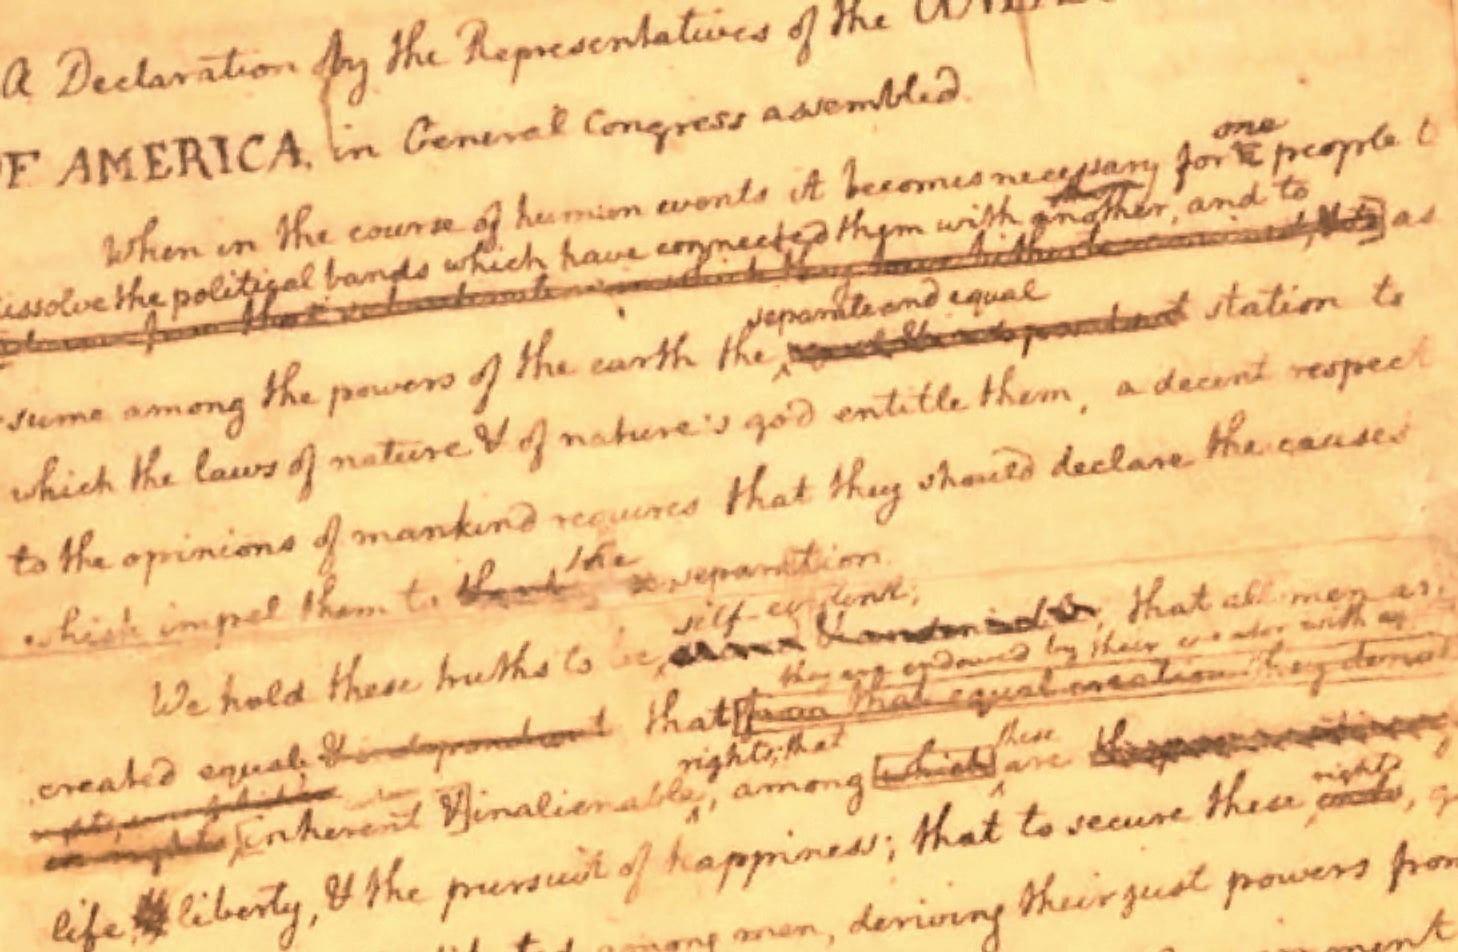 A Declaration by the Representatives of the UNITED
OF AMERICA, in General Congress assembled.
When in the course of human events it becomes necessary for one people t
dissolve the political bands which have connected them with another, and to
as
separate and equal
sume among the powers of the earth the station to
which the laws of nature & of nature's god entitle them, a decent respect
to the opinions of mankind requires that they should declare the causes
which impel them to the separation.
self-evident;
We hold these truths to be that all men ar
they are endowed by their creator with
created equal & independent that [from that equal creation they
rights; that these
[inherent &] inalienable, among [which] are
rights
life, liberty, & the pursuit of happiness; that to secure these ends,
among men, deriving their just powers from